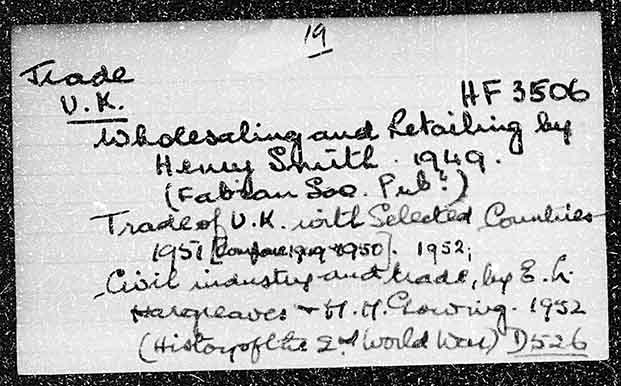 19
Trade
U.K.
HF 3506
Wholesaling and Retailing by
Henry Smith. 1949.
(Fabian Soc. Pub:)
Trade of U.K. with Selected Countries
1951 [Compare 1949 1950]. 1952;
Civil industry and trade, by E. L.
Hargreaves + M. M. Gowing. 1952
(History of the 2nd World War) D526